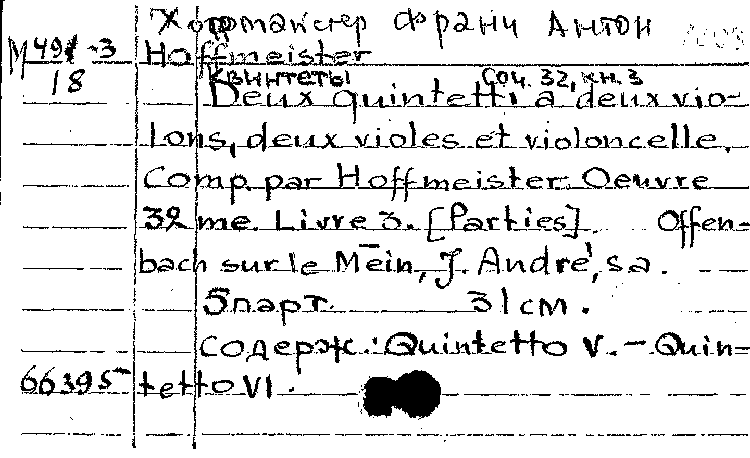 Хоффмайстер Франц Антон
М 491-3 Hoffmeister
18 Квинтеты Соч. 32, кн. 3
Deux quintetti à deux vio-
lons, deux violes et violoncelle.
Comp. par Hoffmeister. Oeuvre
32 me. Livre 3. [Parties]. Offen-
bach sur le Mein, J. André, s.a.
5 парт. 31 см.
Содерж.: Quintetto V. - Quin-
66395 tetto VI.